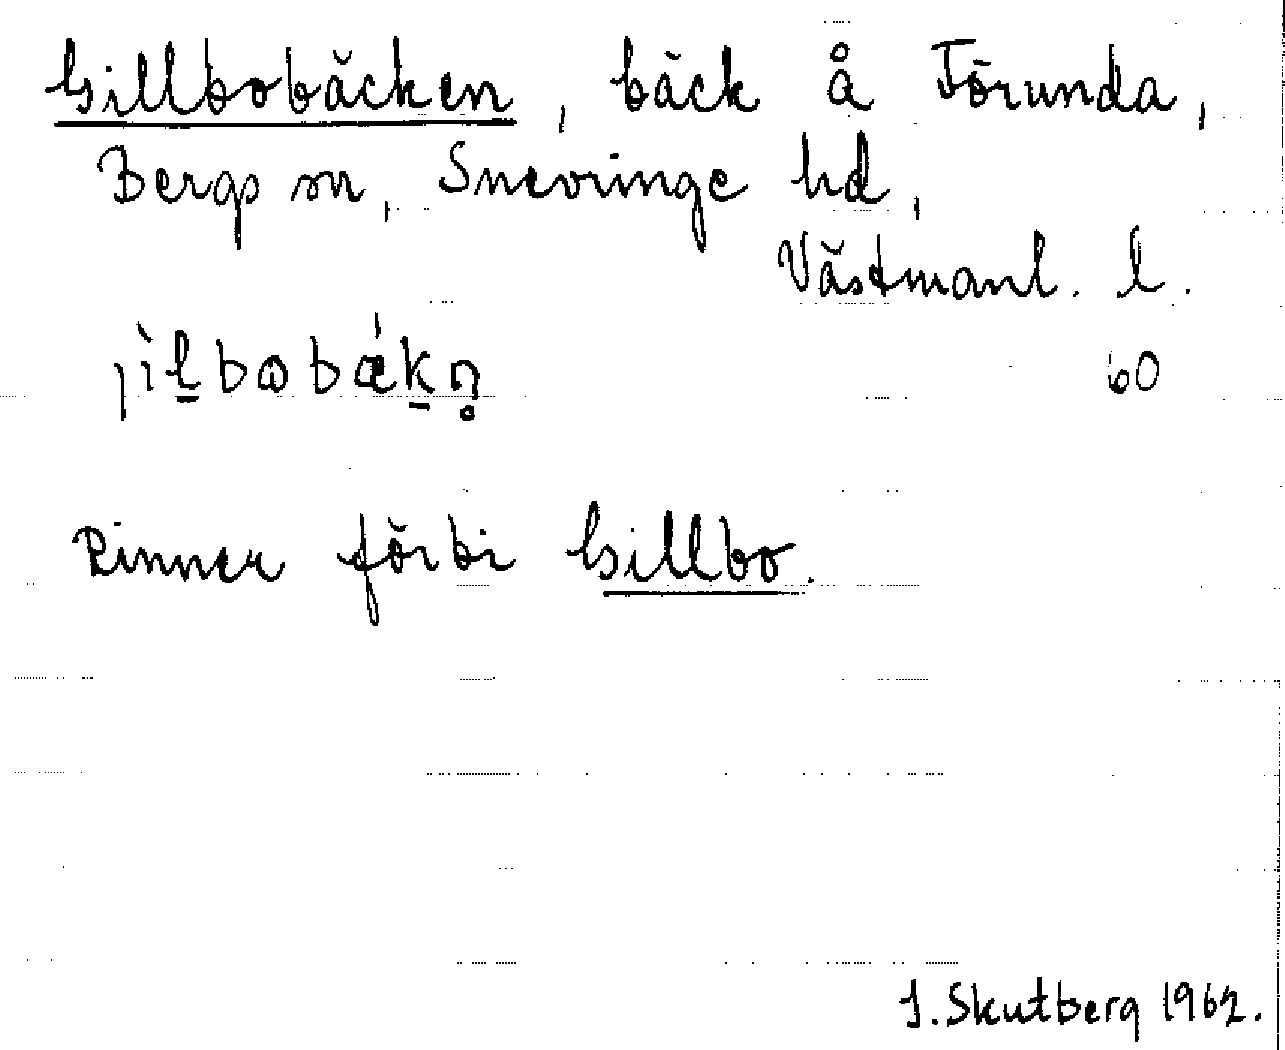 Gillbobäcken, bäck å Törunda,
Bergs sn, Snevringe hd,
Västmanl. l.
jìl̲bobǽk̲n̥
60
Rinner förbi Gillbo.
J. Skutberg 1962.